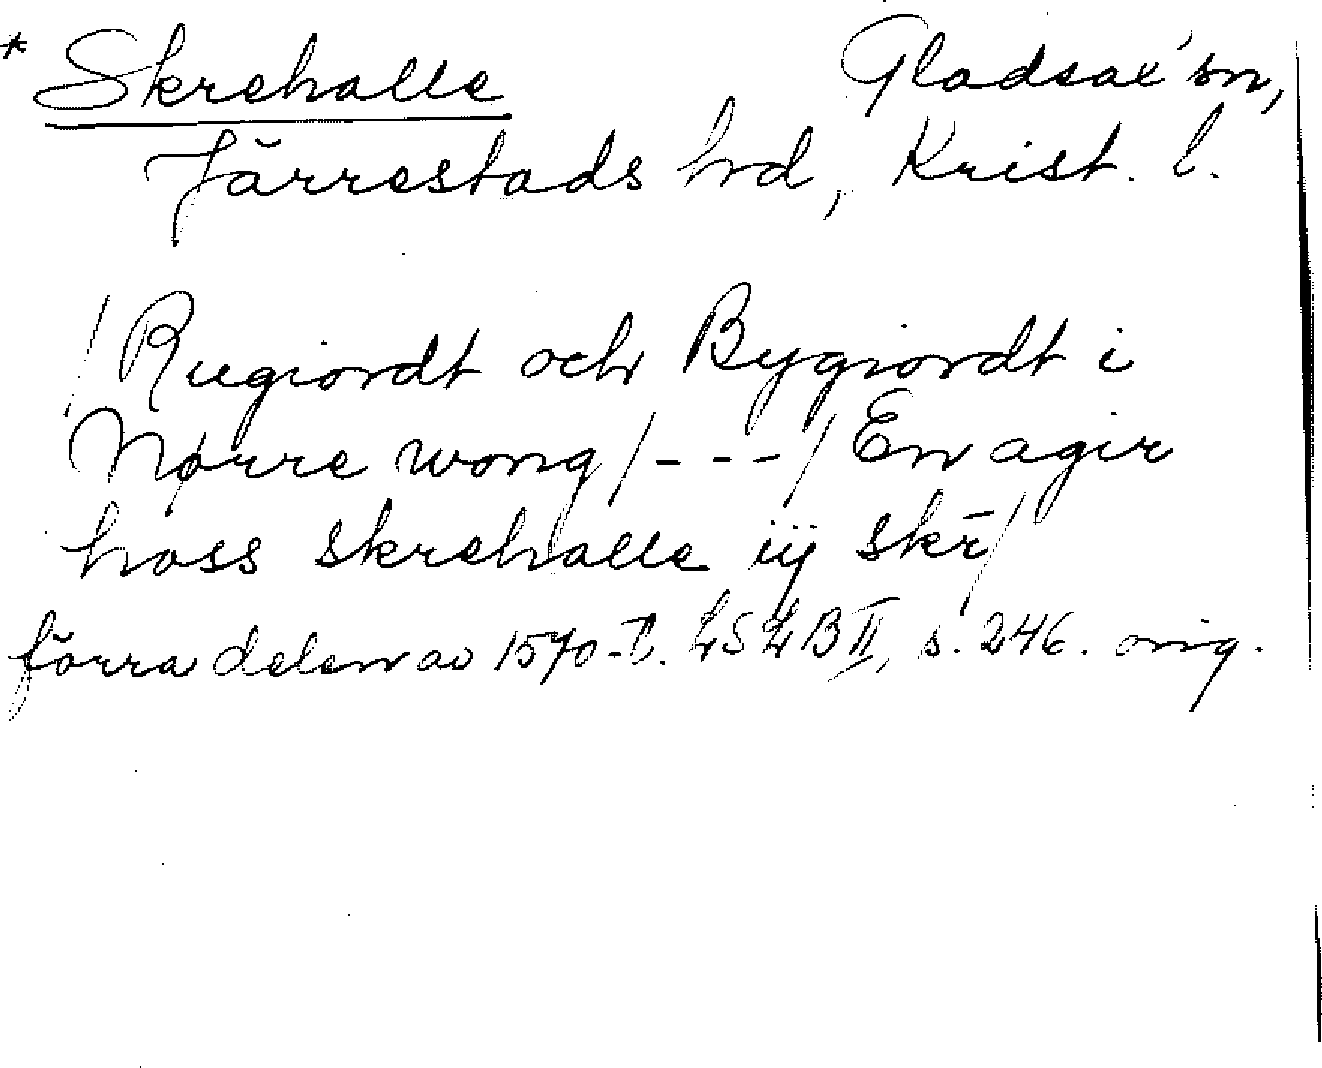 * Skrehalle Gladsax' sn,
Järrestads hrd, Krist. l.
/Rugiordt och Bygiordt i
Nørre wong/---/En agir
hoss skrehalle iij skr̄/
förra delen av 1570-t. LSLB II, s. 246. orig.